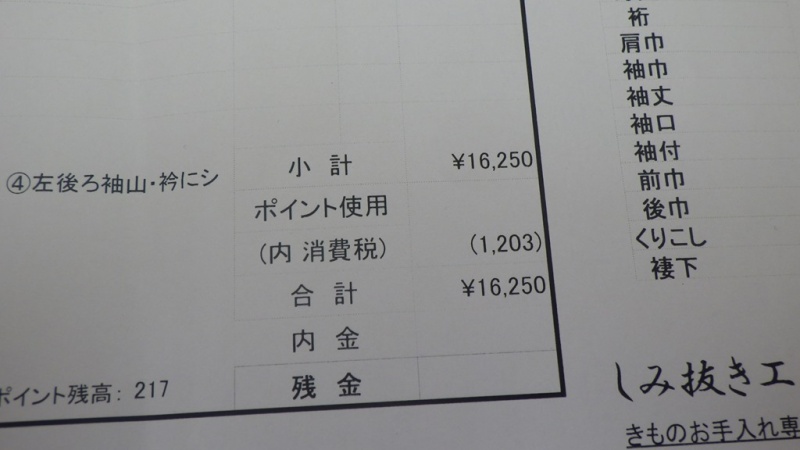 ④左後ろ袖山・衿にシ
小 計 ¥16,250
ポイント使用
(内 消費税) (1,203)
合 計 ¥16,250
内 金
残 金
ポイント残高: 217
裄
肩巾
袖巾
袖丈
袖口
袖付
前巾
後巾
くりこし
褄下
しみ抜き工
きものお手入れ専